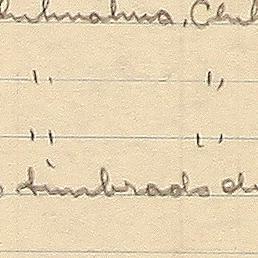 Chihuahua, Chih
" "
" "
timbrado de